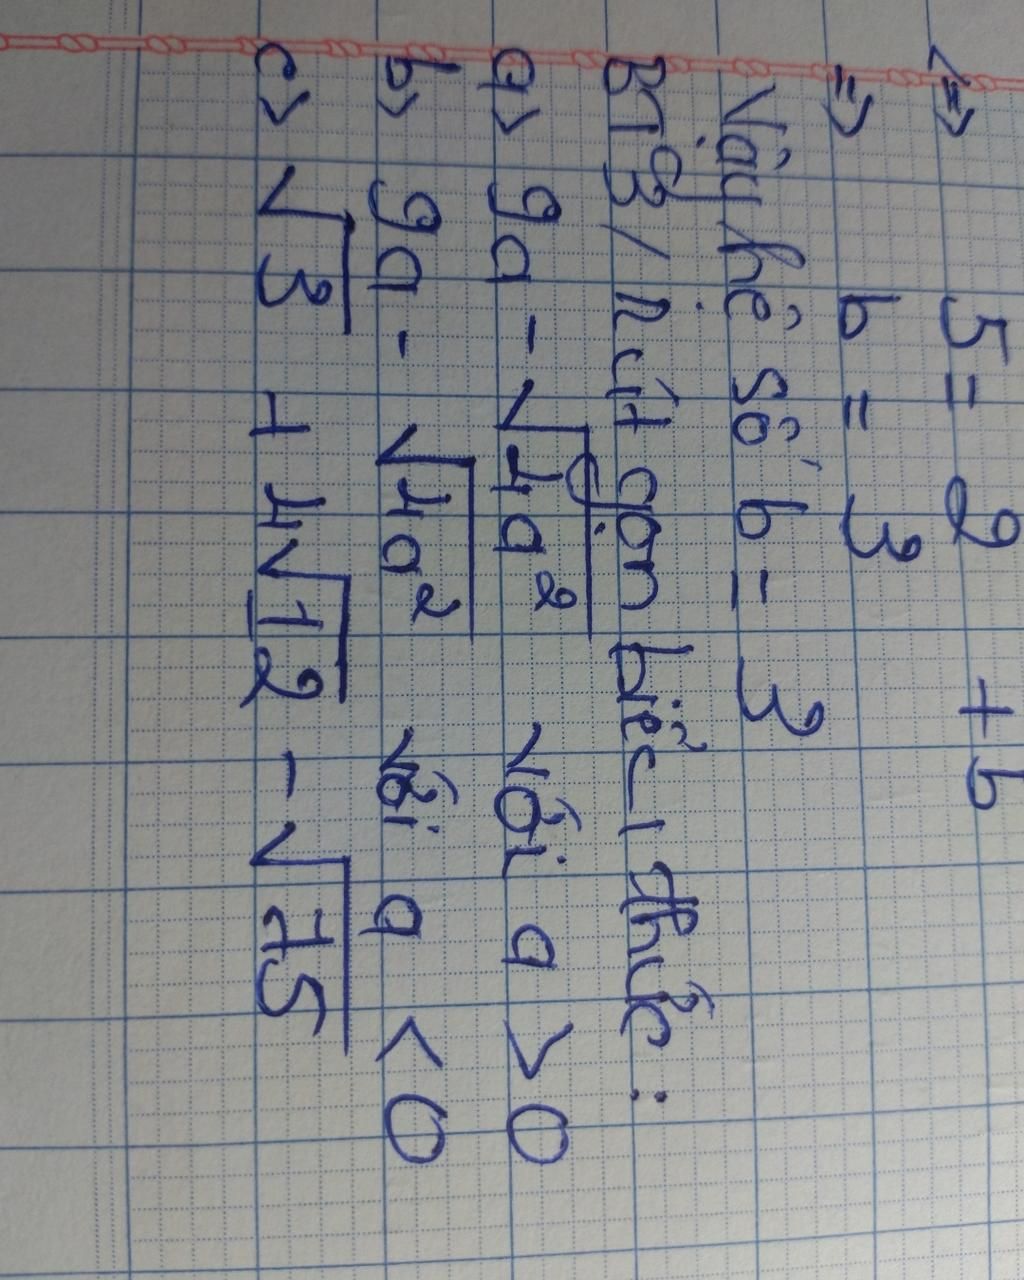 <=> 5 = 2 + b
=> b = 3
Vậy hệ số b = 3
BT3/ Rút gọn biểu thức :
a) 9a - √4a² với a > 0
b) 9a - √4a² với a < 0
c) √3 + 4√12 - √75